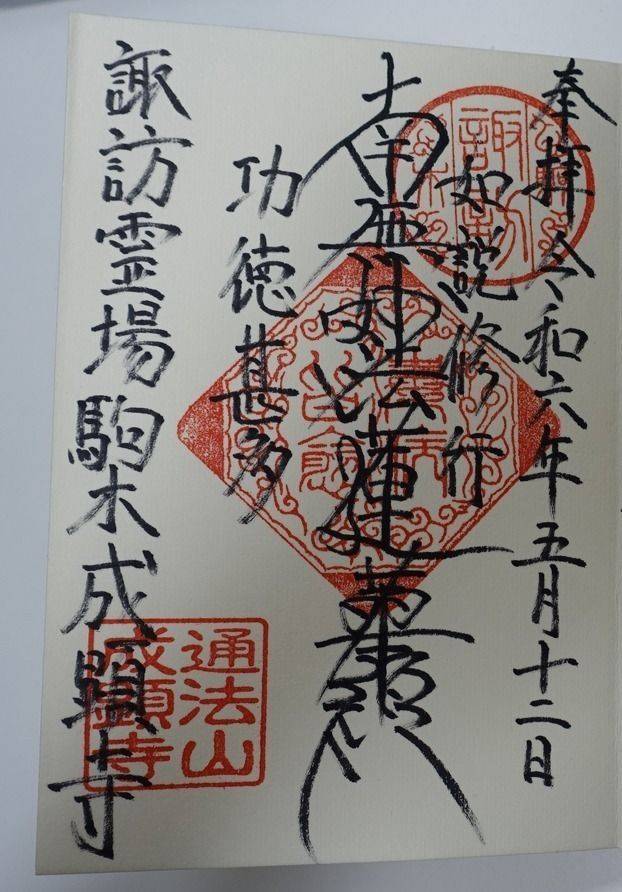 奉拝 令和六年五月十二日
如説修行
南無妙法蓮華経
功徳甚多
諏訪霊場駒木成顕寺
通法山
成顕寺